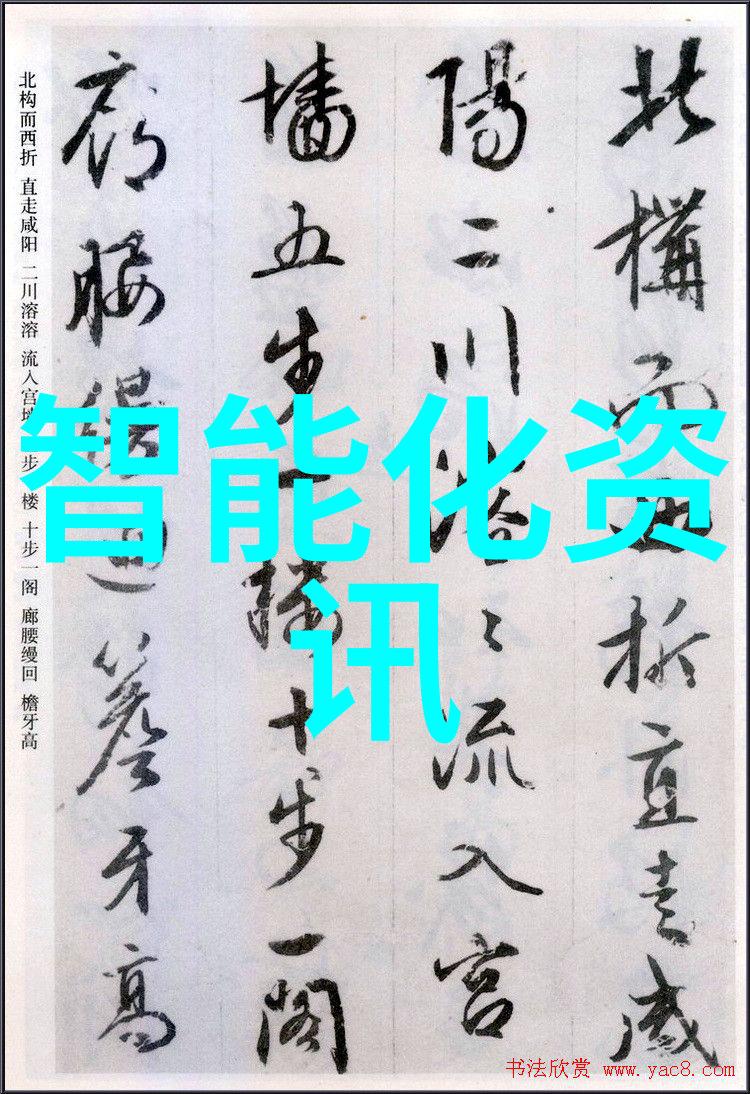 北構而西折直走咸
陽二川溶々流入宮
墻五步一樓十步一閣
廊腰縵迴簷牙高
北构而西折 直走咸阳 二川溶溶 流入宫 步 楼 十步一阁 廊腰缦回 檐牙高
智能化资
讯
书法欣赏 www.yac8.com